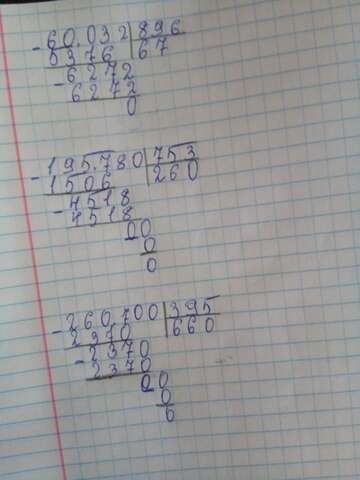 60.032 896
5376 67
6272
6272
0
195.780 753
1506 260
4518
4518
00
0
0
260.700 395
2370 660
2370
2370
00
0
0